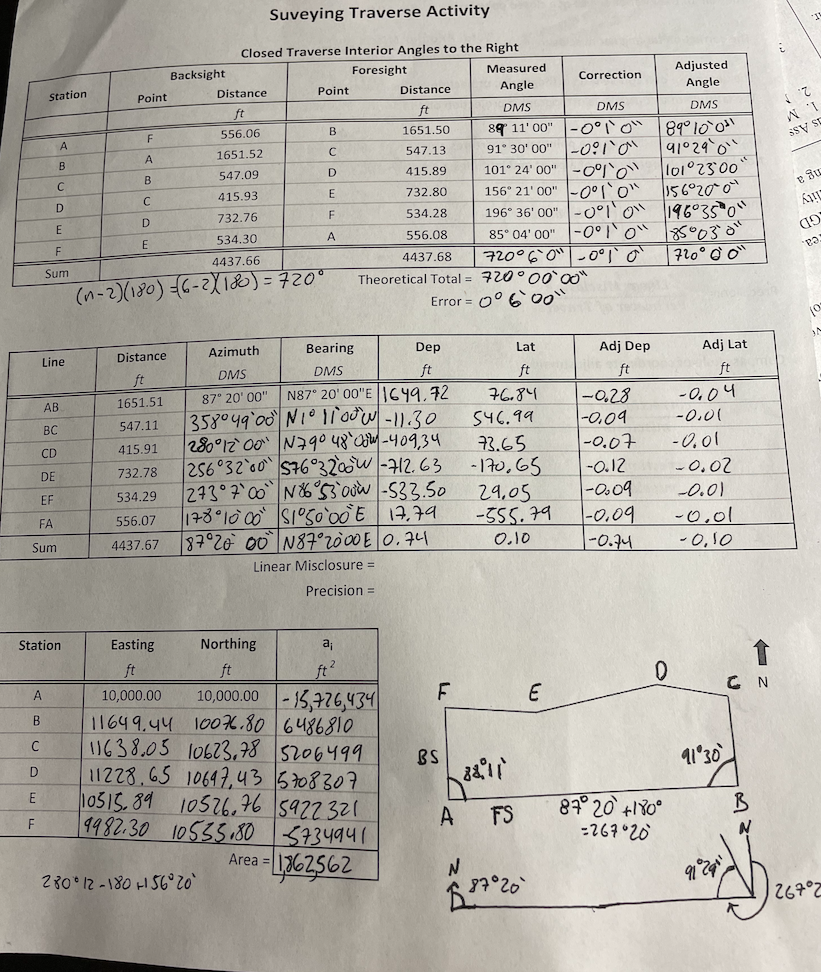 Suveying Traverse Activity
Closed Traverse Interior Angles to the Right
Station Backsight Foresight Measured Angle Correction Adjusted Angle
Point Distance Point Distance
ft ft DMS DMS DMS
A F 556.06 B 1651.50 89° 11' 00" -0°1'0" 89°10'0"
B A 1651.52 C 547.13 91° 30' 00" -0°1'0" 91°29'0"
C B 547.09 D 415.89 101° 24' 00" -0°1'0" 101°23'00"
D C 415.93 E 732.80 156° 21' 00" -0°1'0" 156°20'0"
E D 732.76 F 534.28 196° 36' 00" -0°1'0" 196°35'0"
F E 534.30 A 556.08 85° 04' 00" -0°1'0" 85°03'0"
Sum 4437.66 4437.68 720°6'0" -0°1'0" 720°0'0"
(n-2)(180) = (6-2)(180) = 720° Theoretical Total = 720°00'00"
Error = 0°6'00"
Line Distance Azimuth Bearing Dep Lat Adj Dep Adj Lat
ft DMS DMS ft ft ft ft
AB 1651.51 87° 20' 00" N87° 20' 00"E 1649.72 76.84 -0.28 -0.04
BC 547.11 358°49'00" N1°11'00"W -11.30 546.99 -0.09 -0.01
CD 415.91 280°12'00" N79°48'00W -409.34 73.65 -0.07 -0.01
DE 732.78 256°32'00" S76°32'00"W -712.63 -170.65 -0.12 -0.02
EF 534.29 273°7'00" N86°53'00W -533.50 29.05 -0.09 -0.01
FA 556.07 178°10'00" S1°50'00"E 17.79 -555.79 -0.09 -0.01
Sum 4437.67 87°20'00" N87°20'00E 0.74 0.10 -0.74 -0.10
Linear Misclosure =
Precision =
Station Easting Northing ai
ft ft ft²
A 10,000.00 10,000.00 -15,726,434
B 11649.44 10076.80 6486810
C 11638.05 10623.78 5206499
D 11228.65 10697.43 5708307
E 10515.89 10526.76 5922321
F 9982.30 10555.80 -5734941
Area = 1,862,562
280°12-180+156°20'
F E D C N
BS 88°11' 91°30'
A FS 87°20'+180° B
=267°20'
N 87°20' 91°29' N